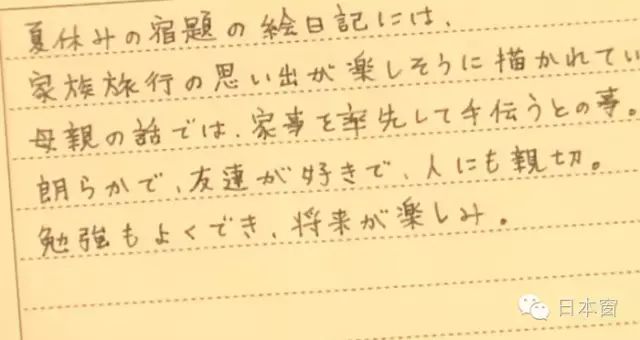 夏休みの宿題の絵日記には、
家族旅行の思い出が楽しそうに描かれてい
母親の話では、家事を率先して手伝うとの事。
朗らかで、友達が好きで、人にも親切。
勉強もよくでき、将来が楽しみ。
日本窗